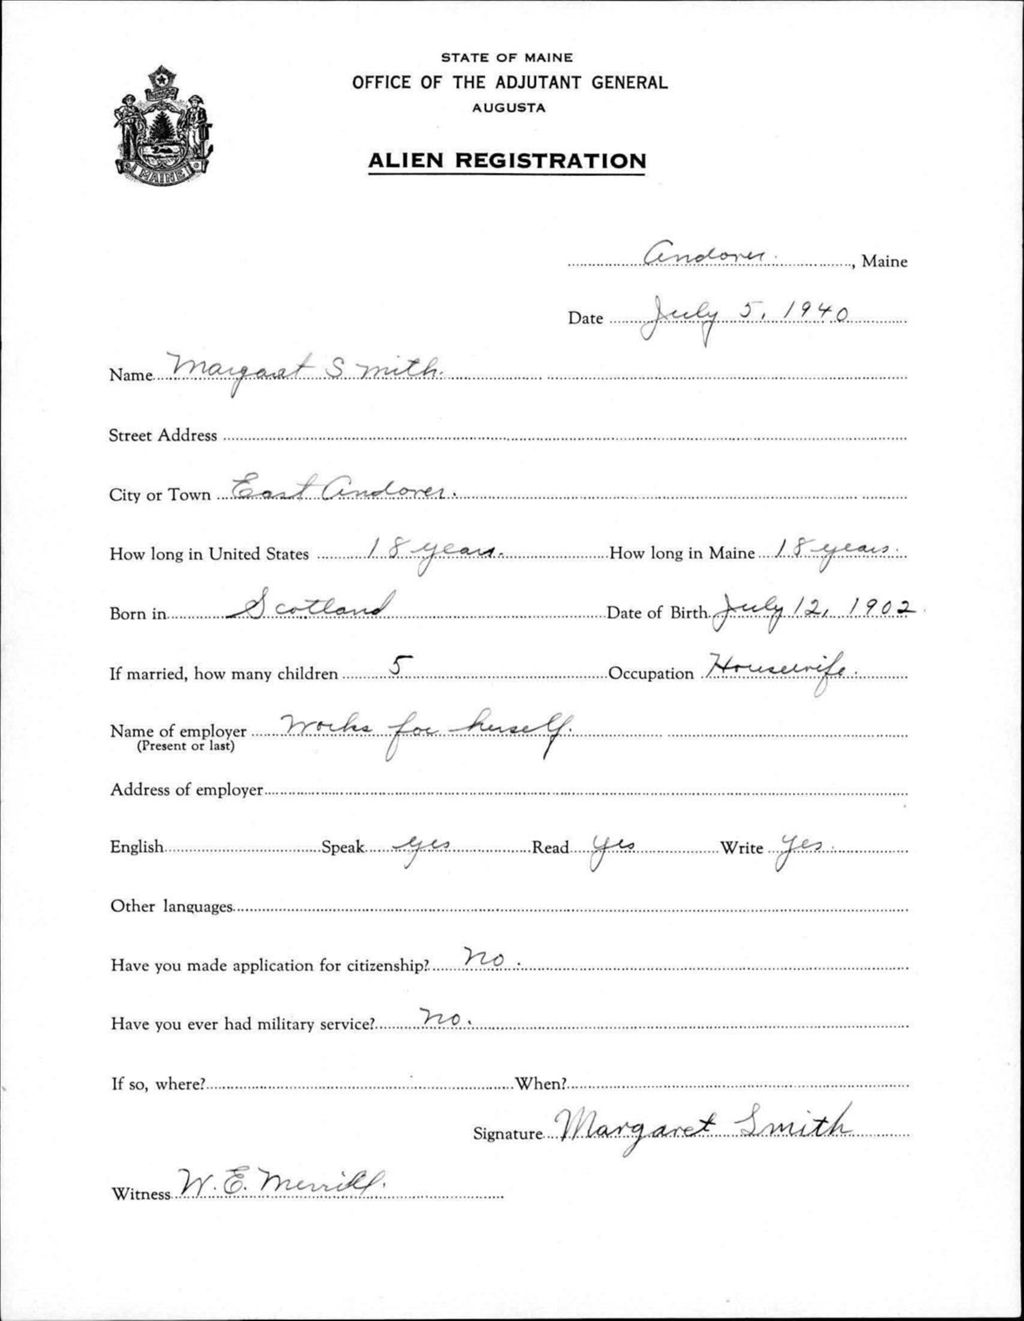 STATE OF MAINE
OFFICE OF THE ADJUTANT GENERAL
AUGUSTA
ALIEN REGISTRATION
MAINE
Andover, Maine
Date July 5, 1940
Name Margaret Smith.
Street Address
City or Town East Andover.
How long in United States 18 years. How long in Maine 18 years.
Born in Scotland Date of Birth July 12, 1902.
If married, how many children 5 Occupation Housewife.
Name of employer Works for herself.
(Present or last)
Address of employer
English Speak yes Read Yes Write Yes.
Other languages
Have you made application for citizenship? No.
Have you ever had military service? No.
If so, where? When?
Signature Margaret Smith
Witness W. E. Merrill.